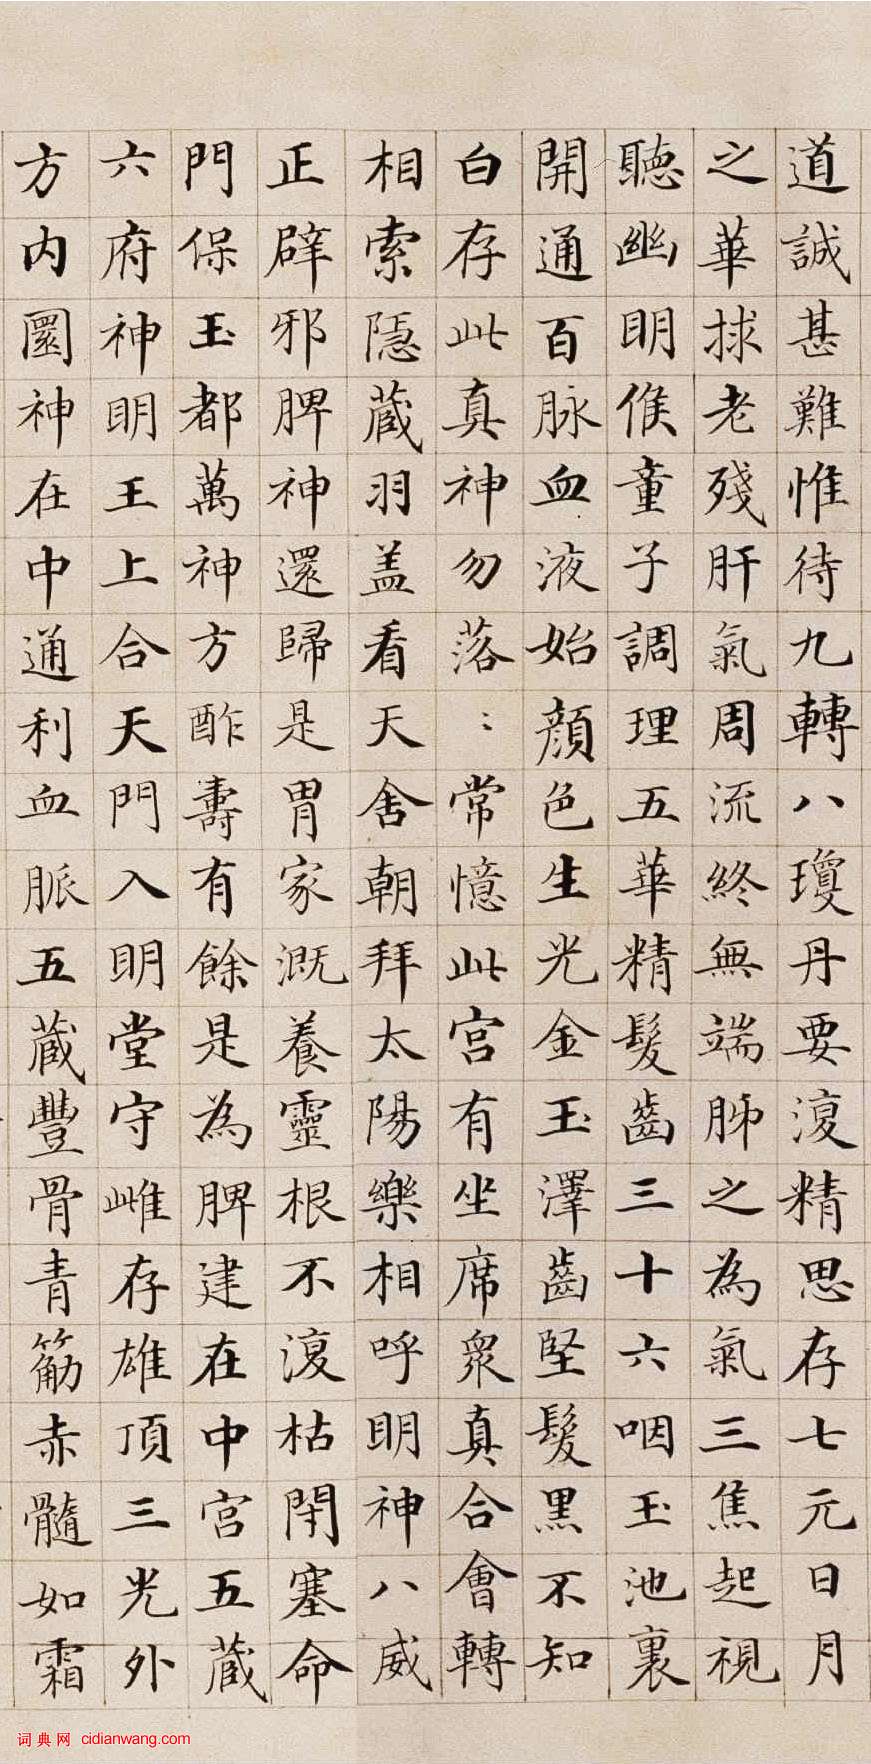 道誠甚難惟待九轉八瓊丹要復精思存七元日月
之華捄老殘肝氣周流終無端肺之為氣三焦起視
聽幽明候童子調理五華精髮齒三十六咽玉池裏
開通百脉血液始顏色生光金玉澤齒堅髮黑不知
白存此真神勿落〻常憶此宮有坐席衆真合會轉
相索隱藏羽盖看天舍朝拜太陽樂相呼明神八威
正辟邪脾神還歸是胃家溉養靈根不復枯閇塞命
門保玉都萬神方酢壽有餘是為脾建在中宮五藏
六府神明王上合天門入明堂守雌存雄頂三光外
方內圓神在中通利血脈五藏豐骨青筋赤髓如霜
词典网 cidianwang.com